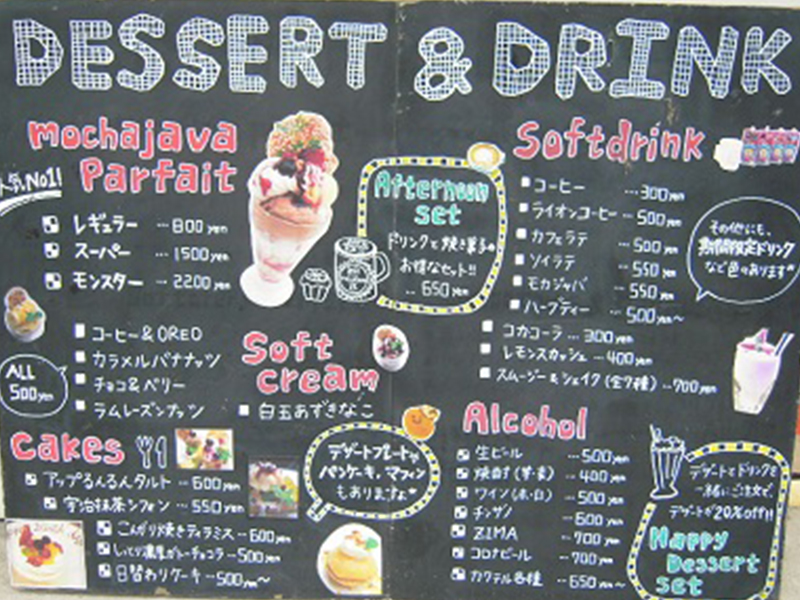 DESSERT & DRINK
mochajava
Parfait
人気No1!
レギュラー …800yen
スーパー …1500yen
モンスター …2200yen
Afternoon
set
ドリンクと焼き菓子の
お得なセット!!
…650yen
コーヒー&OREO
カラメルバナナッツ
チョコ&ベリー
ラムレーズンナッツ
ALL
500yen
Soft
cream
白玉あずきなこ
Cakes
アップるんるんタルト …600yen
宇治抹茶シフォン …550yen
こんがり焼きティラミス …600yen
濃厚ガトーチョコラ …500yen
日替わりケーキ …500yen~
デザートプレートや
パンケーキ、マフィン
もありますよ
Softdrink
コーヒー …300yen
ライオンコーヒー …500yen
カフェラテ …500yen
ソイラテ …550yen
モカジャバ …550yen
ハーブティー …500yen~
コカコーラ …300yen
レモンスカッシュ …400yen
スムージー&シェイク(全7種) …700yen
その他にも、
期間限定ドリンク
など色々あります
Alcohol
生ビール …500yen
焼酎(芋・麦) …400yen
ワイン(赤・白) …500yen
チンザノ …600yen
ZIMA …700yen
コロナビール …700yen
カクテル各種 …650yen~
デザートとドリンクを
一緒にご注文で、
デザートが20%off!!
Happy
Dessert
set